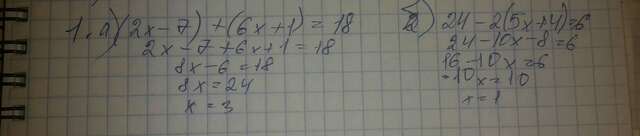 1. а) (2x-7)+(6x+1)=18
2x-7+6x+1=18
8x-6=18
8x=24
x=3
2) 24-2(5x+4)=6
24-10x-8=6
16-10x=6
-10x=10
x=1